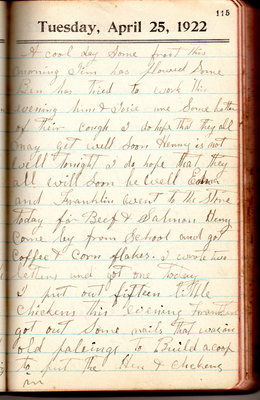 115
Tuesday, April 25, 1922
A cool day Some frost this
morning Jim has plowed Some
Ben has tried to work this
evening him & are Some better
of their cough I do hope that they all
may get well Soon Henry is not
well tonight I do hope that they
all will Soon be well Edwin
and Franklin went to the Store
today for Beef & Salmon Henry
come by from School and got
Coffee & Corn flakes. I wrote two
letters and got one today
I put out fifteen little
Chickens this evening Franklin
got out Some nails that was in
old paleings to Build a coop
to put the Hen & chickens
in